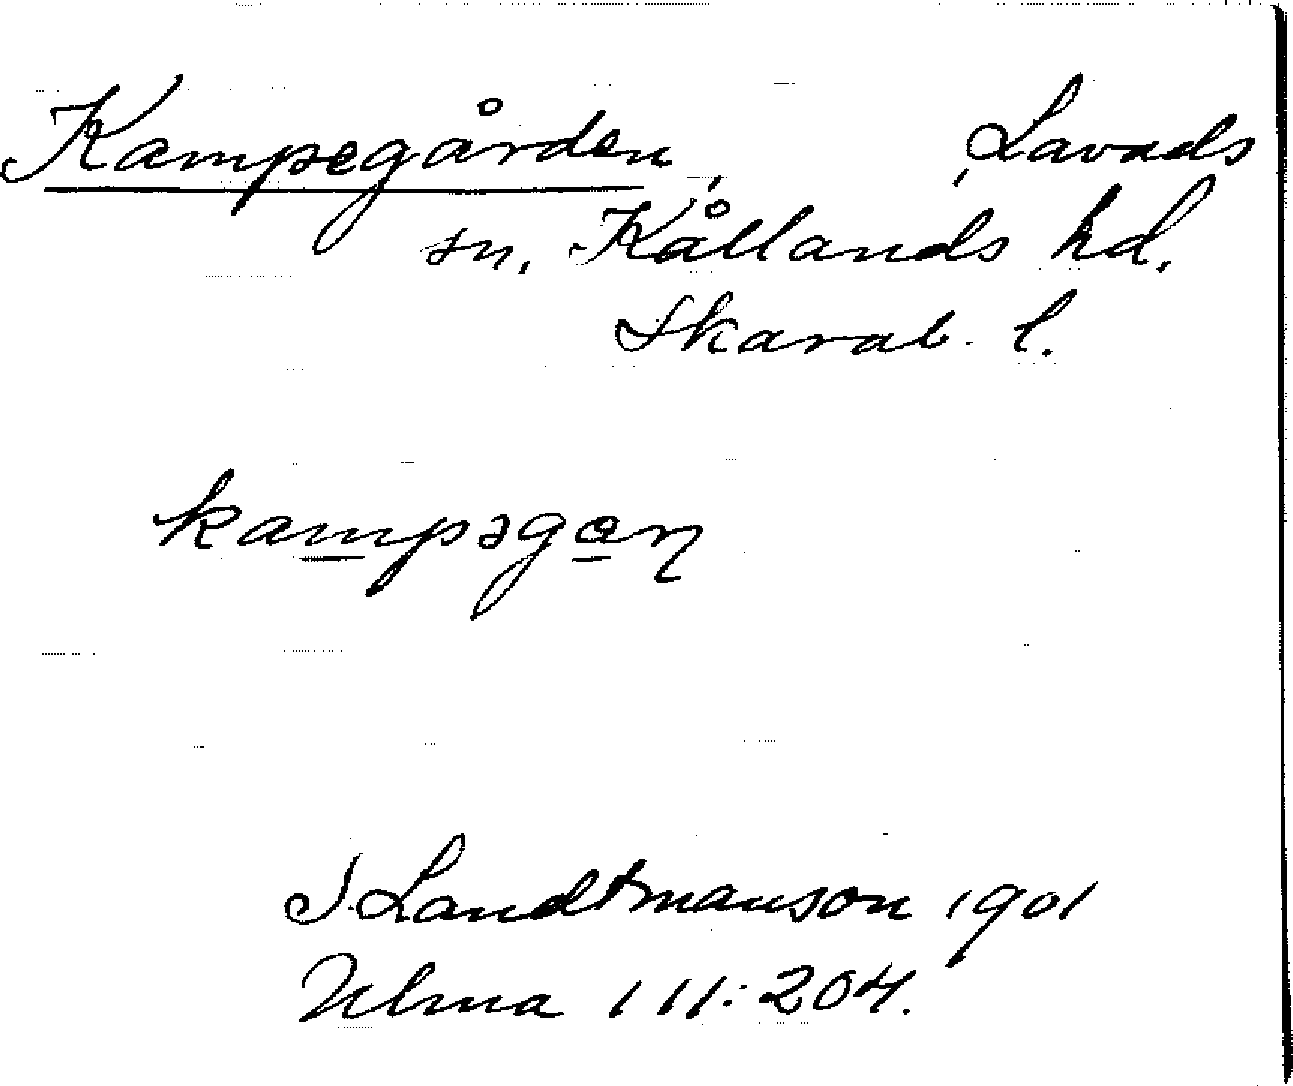 Kampegården, Lavads
sn, Kållands hd.
Skarab. l.
kampəgan
J. Landtmanson 1901
Ulma 111:204.